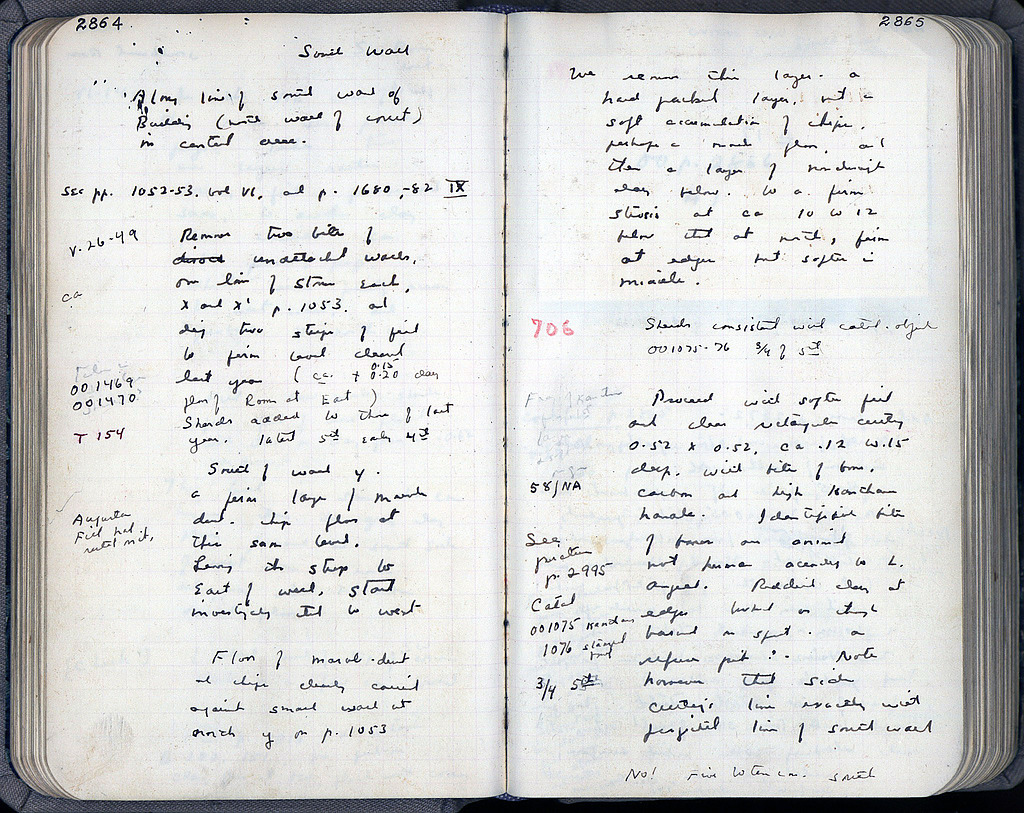 2864
South Wall
Along line of south wall of
Building (north wall of court)
in central area.
See pp. 1052-53, vol VI, and p. 1680,-82 IX
V-26-49
Remove two bits of
unattached walls,
one line of stone each,
X and X' p. 1053. and
dig two strips of fill
to firm level cleared
ca
last year (ca. + 0.15 0.20 clay
001469
001470
floor of Room at East)
Sherds added to those of last
year. latest 5th early 4th
T 154
South of wall y.
a firm layer of marble
dust. chip floor at
this same level.
Leaving the strip to
East of wall, start
investigate that to west
Augusta
Floor of marble dust
and chips clearly cover
against small wall at
y on p. 1053
2865
We remove this layer. a
hard packed layer, not a
soft accumulation of chips.
perhaps a made floor, and
then a layer of
clay below. to a firm
stereo at ca 10 to 12
below that at north, firm
at edges but softer in
middle.
706
Sherds consistent with catal. objects
001075-76 3/4 of 5th
Proceed with softer fill
and clear rectangular cutting
0.52 x 0.52, ca .12 to .15
deep. with bits of bone,
58/NA
carbon and high kantharos
handle. Identifiable bits
See
picture
p. 2995
of bones are animal
not human according to L.
Angel. Reddish clay at
Catal
001075 Kantharos
1076 stamped
edges looked as though
burned in spot. a
refuse pit?. Note
3/4 5th
however that side
cutting's line exactly with
projected line of south wall
No! Five 10 ten cm. south